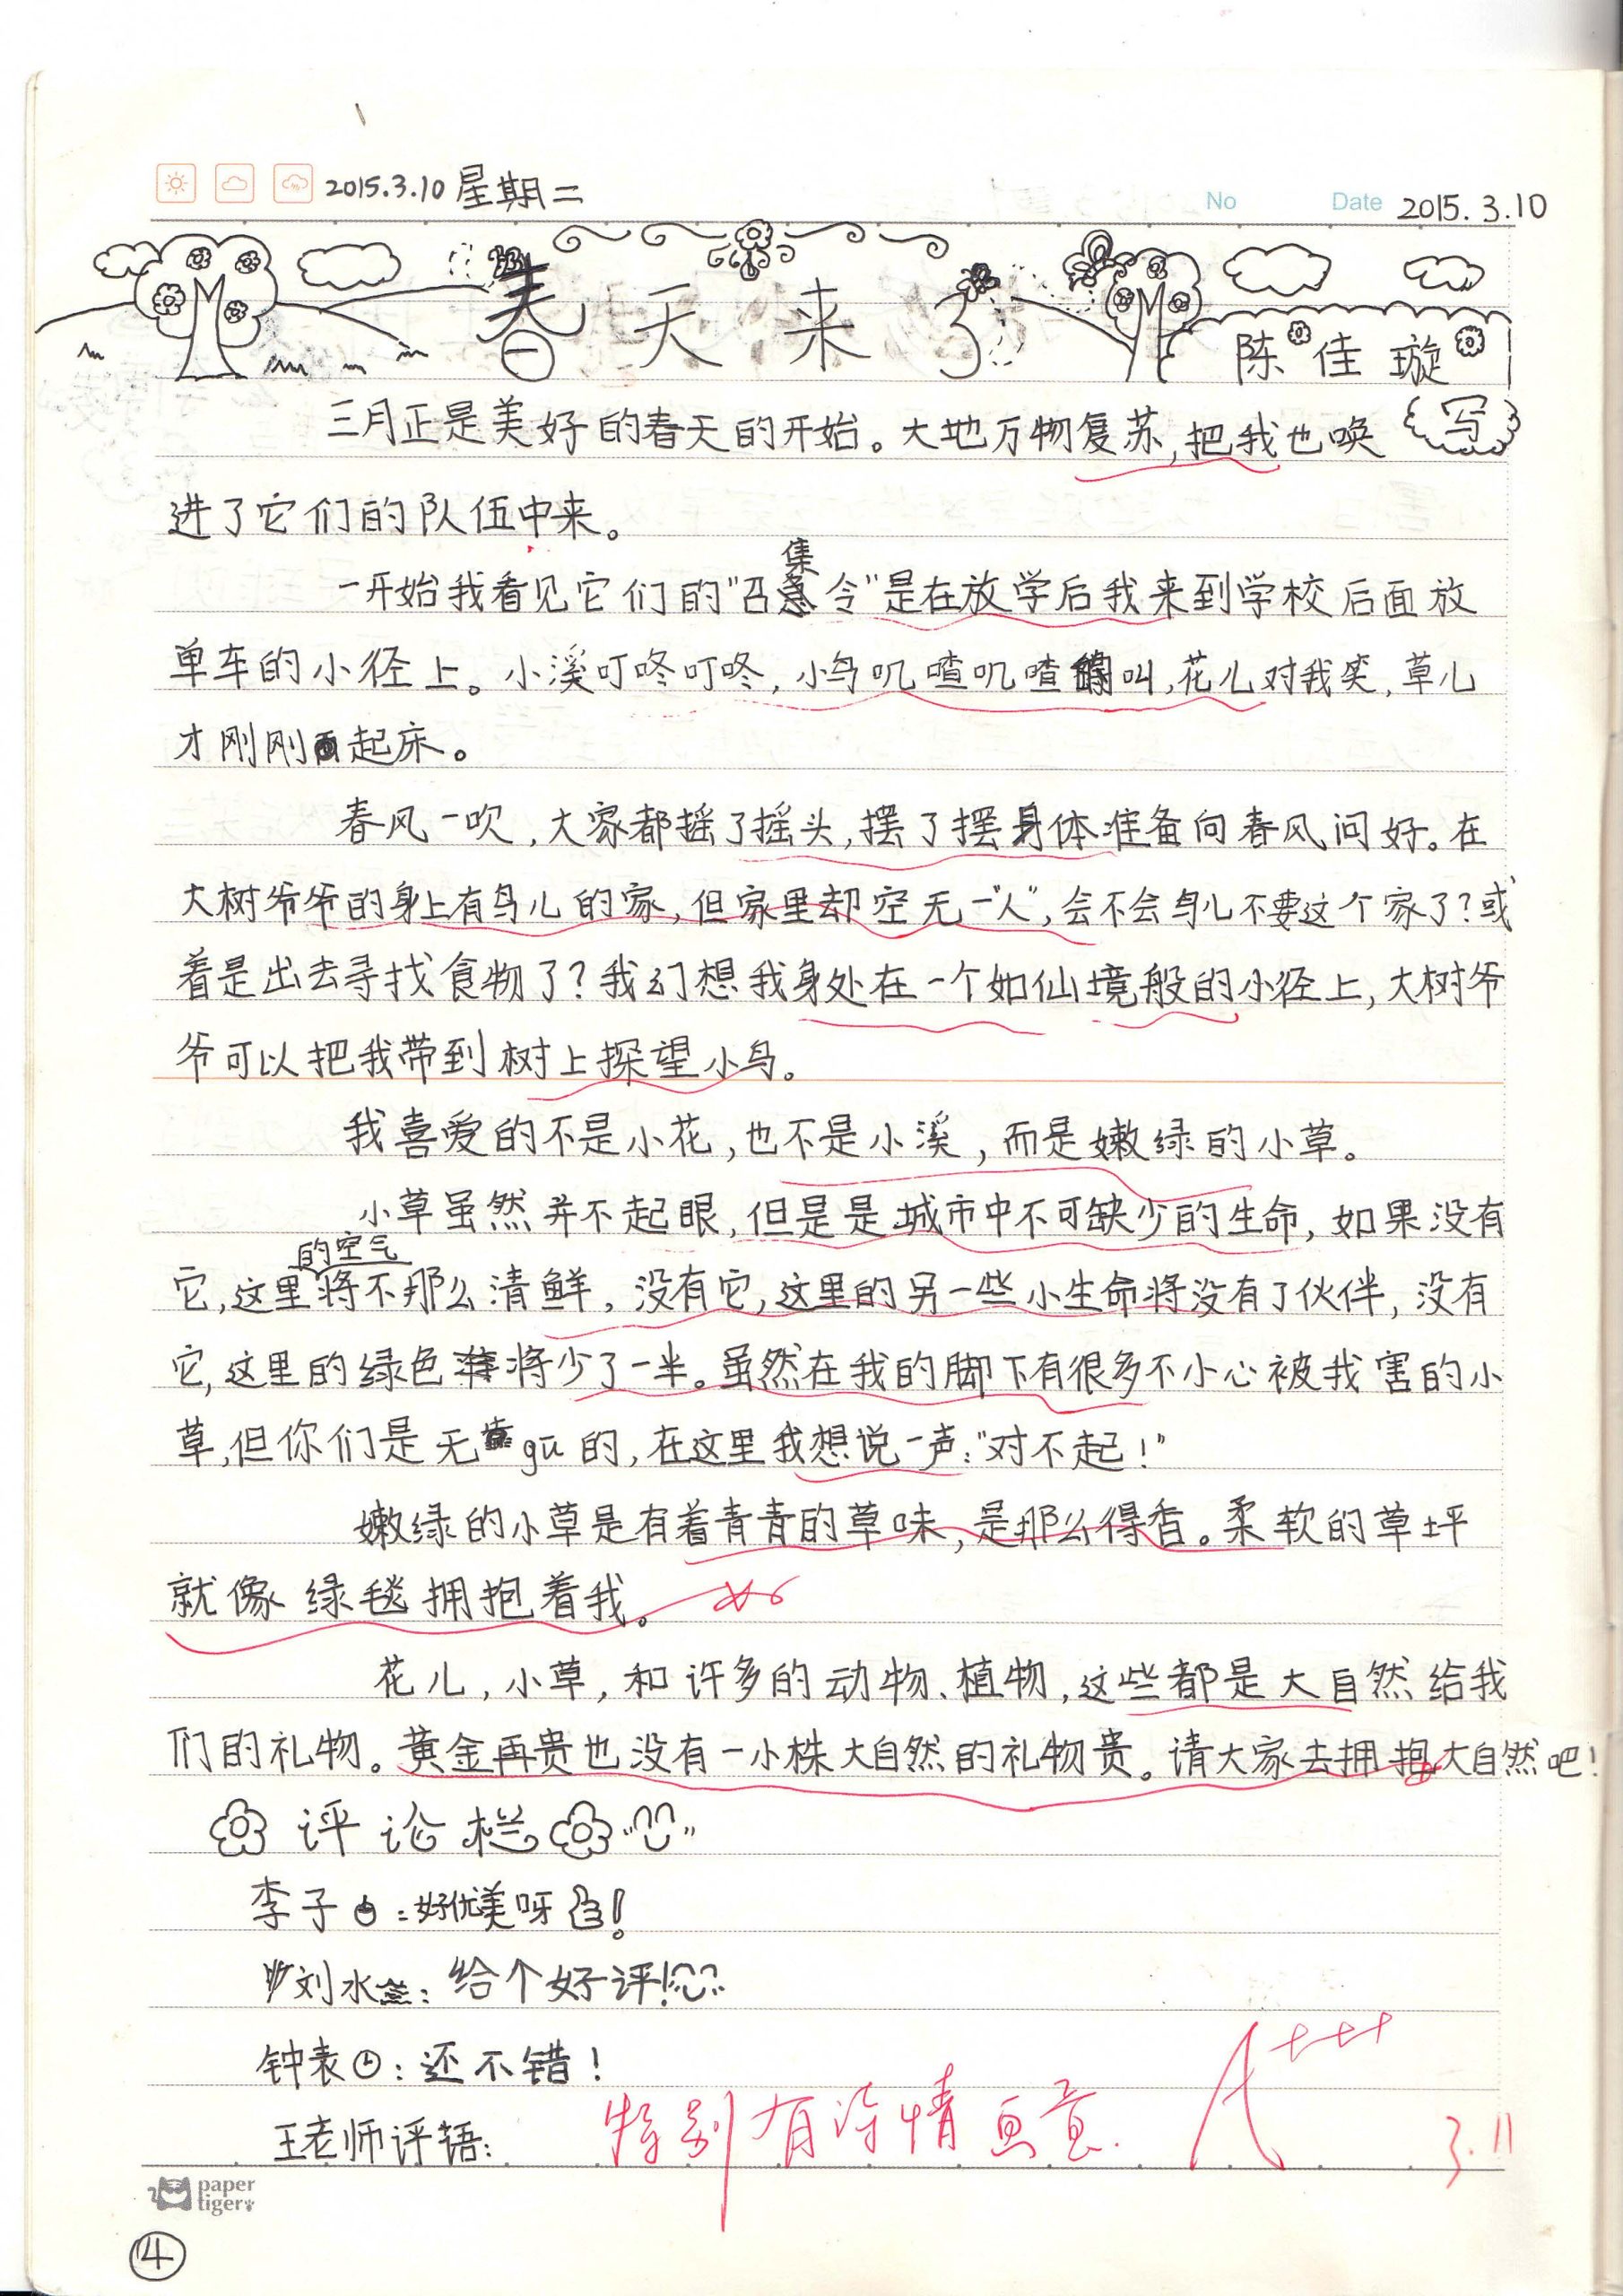 2015.3.10 星期二
No Date 2015.3.10
春天来了
陈佳璇
写
三月正是美好的春天的开始。大地万物复苏,把我也唤
进了它们的队伍中来。
一开始我看见它们的"召集令"是在放学后我来到学校后面放
单车的小径上。小溪叮咚叮咚,小鸟叽喳叽喳叫,花儿对我笑,草儿
才刚刚起床。
春风一吹,大家都摇了摇头,摆了摆身体准备向春风问好。在
大树爷爷的身上有鸟儿的家,但家里却空无一"人",会不会鸟儿不要这个家了?或
着是出去寻找食物了?我幻想我身处在一个如仙境般的小径上,大树爷
爷可以把我带到树上探望小鸟。
我喜爱的不是小花,也不是小溪,而是嫩绿的小草。
小草虽然并不起眼,但是是城市中不可缺少的生命,如果没有
它,这里的空气将不那么清鲜,没有它,这里的另一些小生命将没有了伙伴,没有
它,这里的绿色将少了一半。虽然在我的脚下有很多不小心被我害的小
草,但你们是无gū的,在这里我想说一声:"对不起!"
嫩绿的小草是有着青青的草味,是那么得香。柔软的草坪
就像绿毯拥抱着我。
花儿,小草,和许多的动物、植物,这些都是大自然给我
们的礼物。黄金再贵也没有一小株大自然的礼物贵。请大家去拥抱大自然吧!
评论栏
李子:好优美呀!
刘水:给个好评!
钟表:还不错!
王老师评语: 特别有诗情画意. A+++
3.11
paper
tiger
4